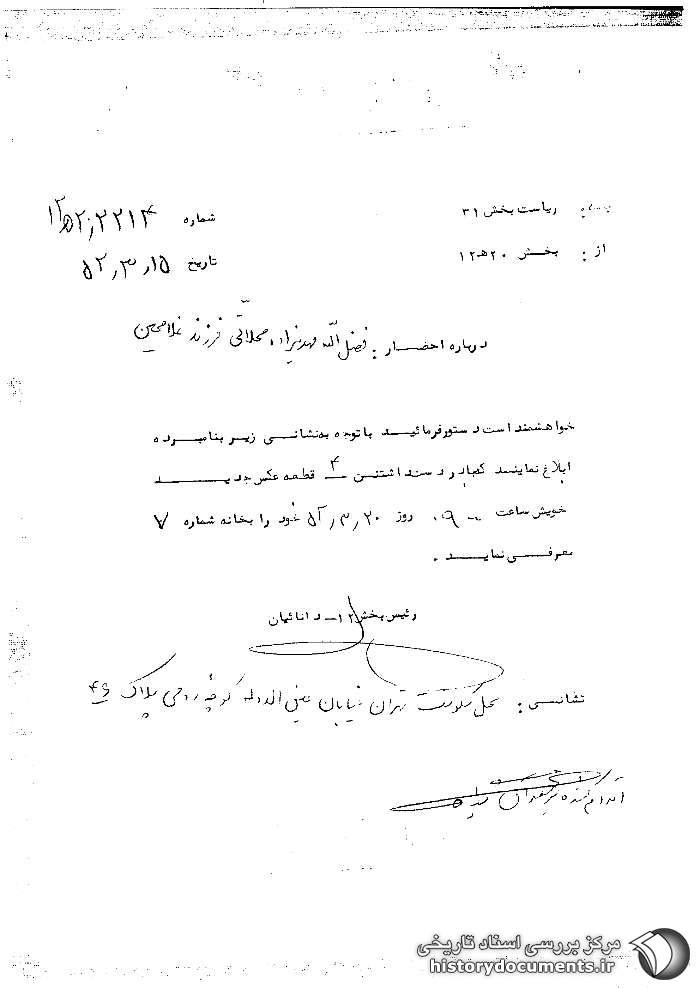 ریاست بخش ۳۱
شماره ۲۲۱۴
از : بخش ۲۰هـ۱۲
تاریخ ۵۲٫۳٫۱۵
درباره احضار : فضل اله مهدیزاده محلاتی فرزند غلامحسین
خواهشمند است دستور فرمائید با توجه به نشانی زیر بنامبرده
ابلاغ نمایند که با در دست داشتن ۴ قطعه عکس جدید
خویش ساعت ۰۹۰۰ روز ۵۲٫۳٫۲۰ خود را بخانه شماره ۷
معرفی نماید .
رئیس بخش ۱۲ــ دانائیان
نشانی : محل سکونت تهران خیابان عین الدوله کوچه روحی پلاک ۴۶
اقدام کننده
مرکز بررسی اسناد تاریخی
historydocuments.ir